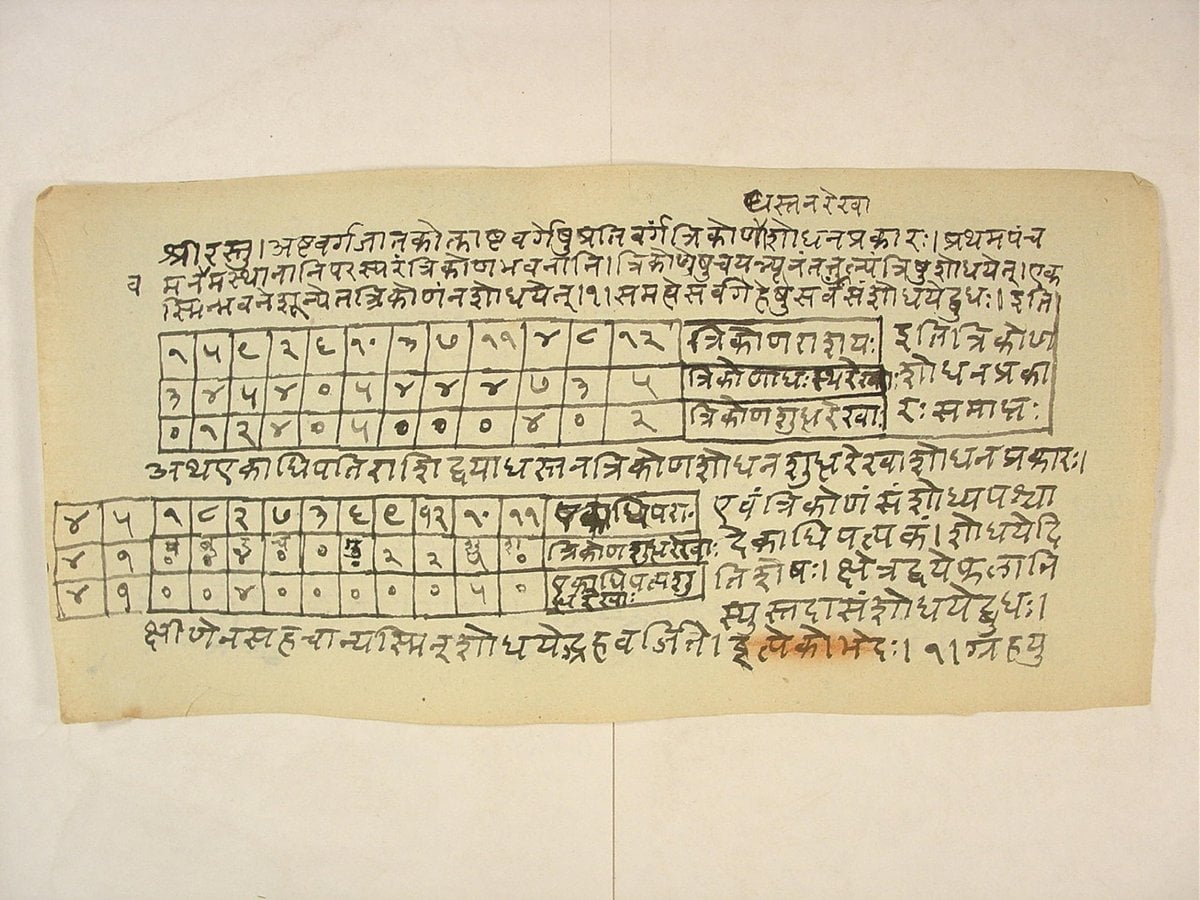 धस्तनरेखा
श्रीरस्तु।अष्टवर्गजातकोत्काष्टवर्गेषुप्रतिवर्गंत्रिकोणशोधनप्रकारः।प्रथमपंच
व मनैमस्थानानिपरस्परंत्रिकोणभवनानि।त्रिकोणेषुचयन्न्यूनंतत्तुल्यंत्रिषुशोधयेत्।एक
स्मिन्भवनेशून्येतत्रिकोणंनशोधयेत्।१।समत्वेसर्वगेहेषुसर्वंसंशोधयेद्बुधः।इति
१ ५ ९ २ ६ १० ३ ७ ११ ४ ८ १२ त्रिकोणराशयः इतित्रिकोण
३ ४ ५ ४ ० ५ ४ ४ ४ ७ ३ ५ त्रिकोणाधःस्थरेखाः शोधनप्रका
० १ २ ४ ० ५ ० ० ० ४ ० २ त्रिकोणशुद्धरेखाः रःसमाप्तः
अथएकाधिपतिराशिद्वयाधस्तनत्रिकोणशोधनशुद्धरेखाशोधनप्रकारः।
४ ५ १ ८ २ ७ ३ ६ ९ १२ १० ११ एकाधिपरा० एवंत्रिकोणंसंशोध्यपश्चा
४ १ ० ० ४ ० ० ० २ २ ५ ० त्रिकोणशुद्धरेखाः देकाधिपत्यकं।शोधयेदि
४ १ ० ० ४ ० ० ० ० ० ५ ० एकाधिपत्यशु तिशेषः।क्षेत्रद्वयेफलानि
द्धरेखाः स्युस्तदासंशोधयेद्बुधः।
क्षीणेनसहचान्यस्मिन्शोधयेद्ग्रहवर्जिते।इत्येकोभेदः।१।ग्रहयु